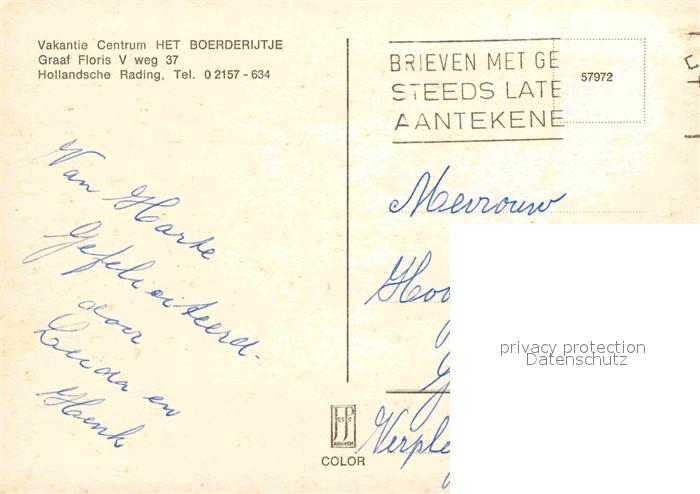 Vakantie Centrum HET BOERDERIJTJE
Graaf Floris V weg 37
Hollandsche Rading, Tel. 0 2157 - 634
BRIEVEN MET GE
STEEDS LATE
AANTEKENE
57972
Van Harte
Gefeliciteerd.
door
Luida en
Henk
Mevrouw
Hoo
G
Verple
privacy protection
Datenschutz
COLOR